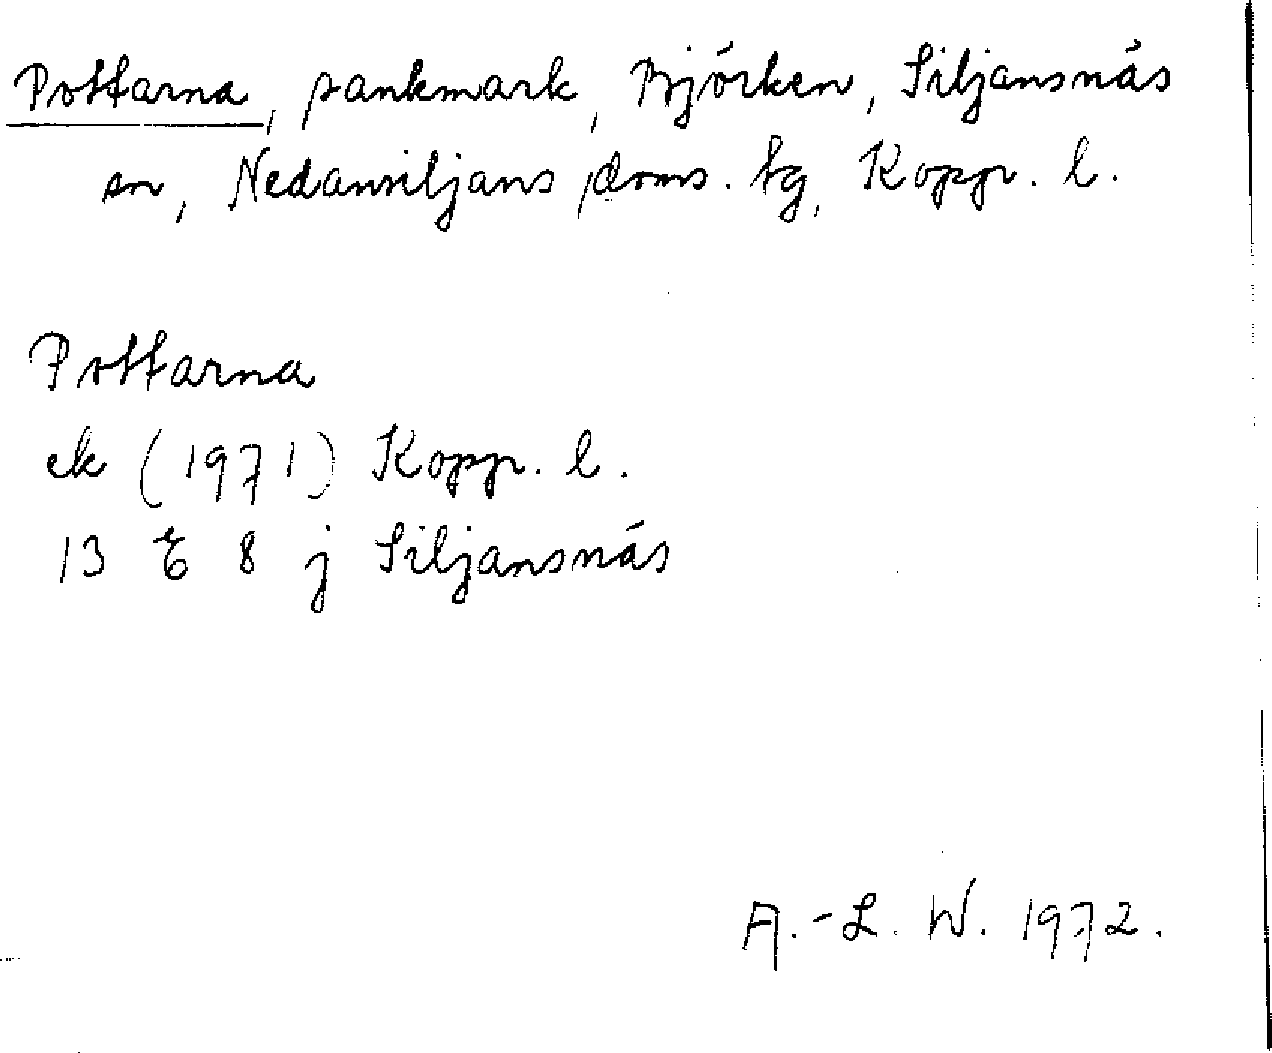 Pottarna, sankmark, Björken, Siljansnäs
sn, Nedansiljans doms. tg, Kopp. l.
Pottarna
ek (1971) Kopp. l.
13 E 8 j Siljansnäs
A.-L. W. 1972.